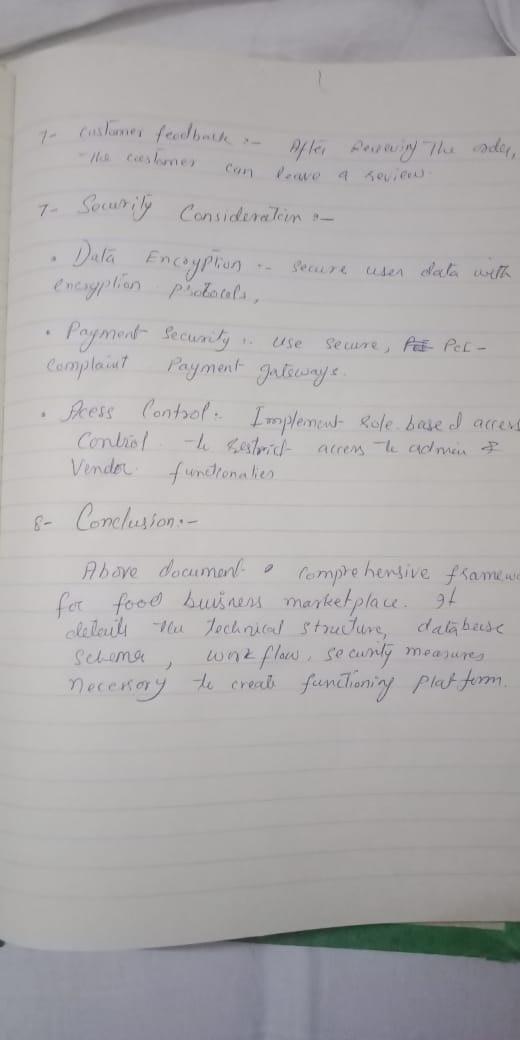 7- Customer feedback :- After Receiving The order,
-The customer can leave a review.
7- Security Consideration :-
• Data Encryption :- Secure user data with
encryption protocols,
• Payment Security :. Use secure, PCI-
Complaint Payment gateways.
• Acess Control :. Implement Role based access
Control to Restrict access to admin &
Vendor functionalies
8- Conclusion :-
Above document a Comprehensive framew
for food buisness marketplace. It
details the Technical structure, database
Schema, work flow, security measures
necessary to create functioning platform.